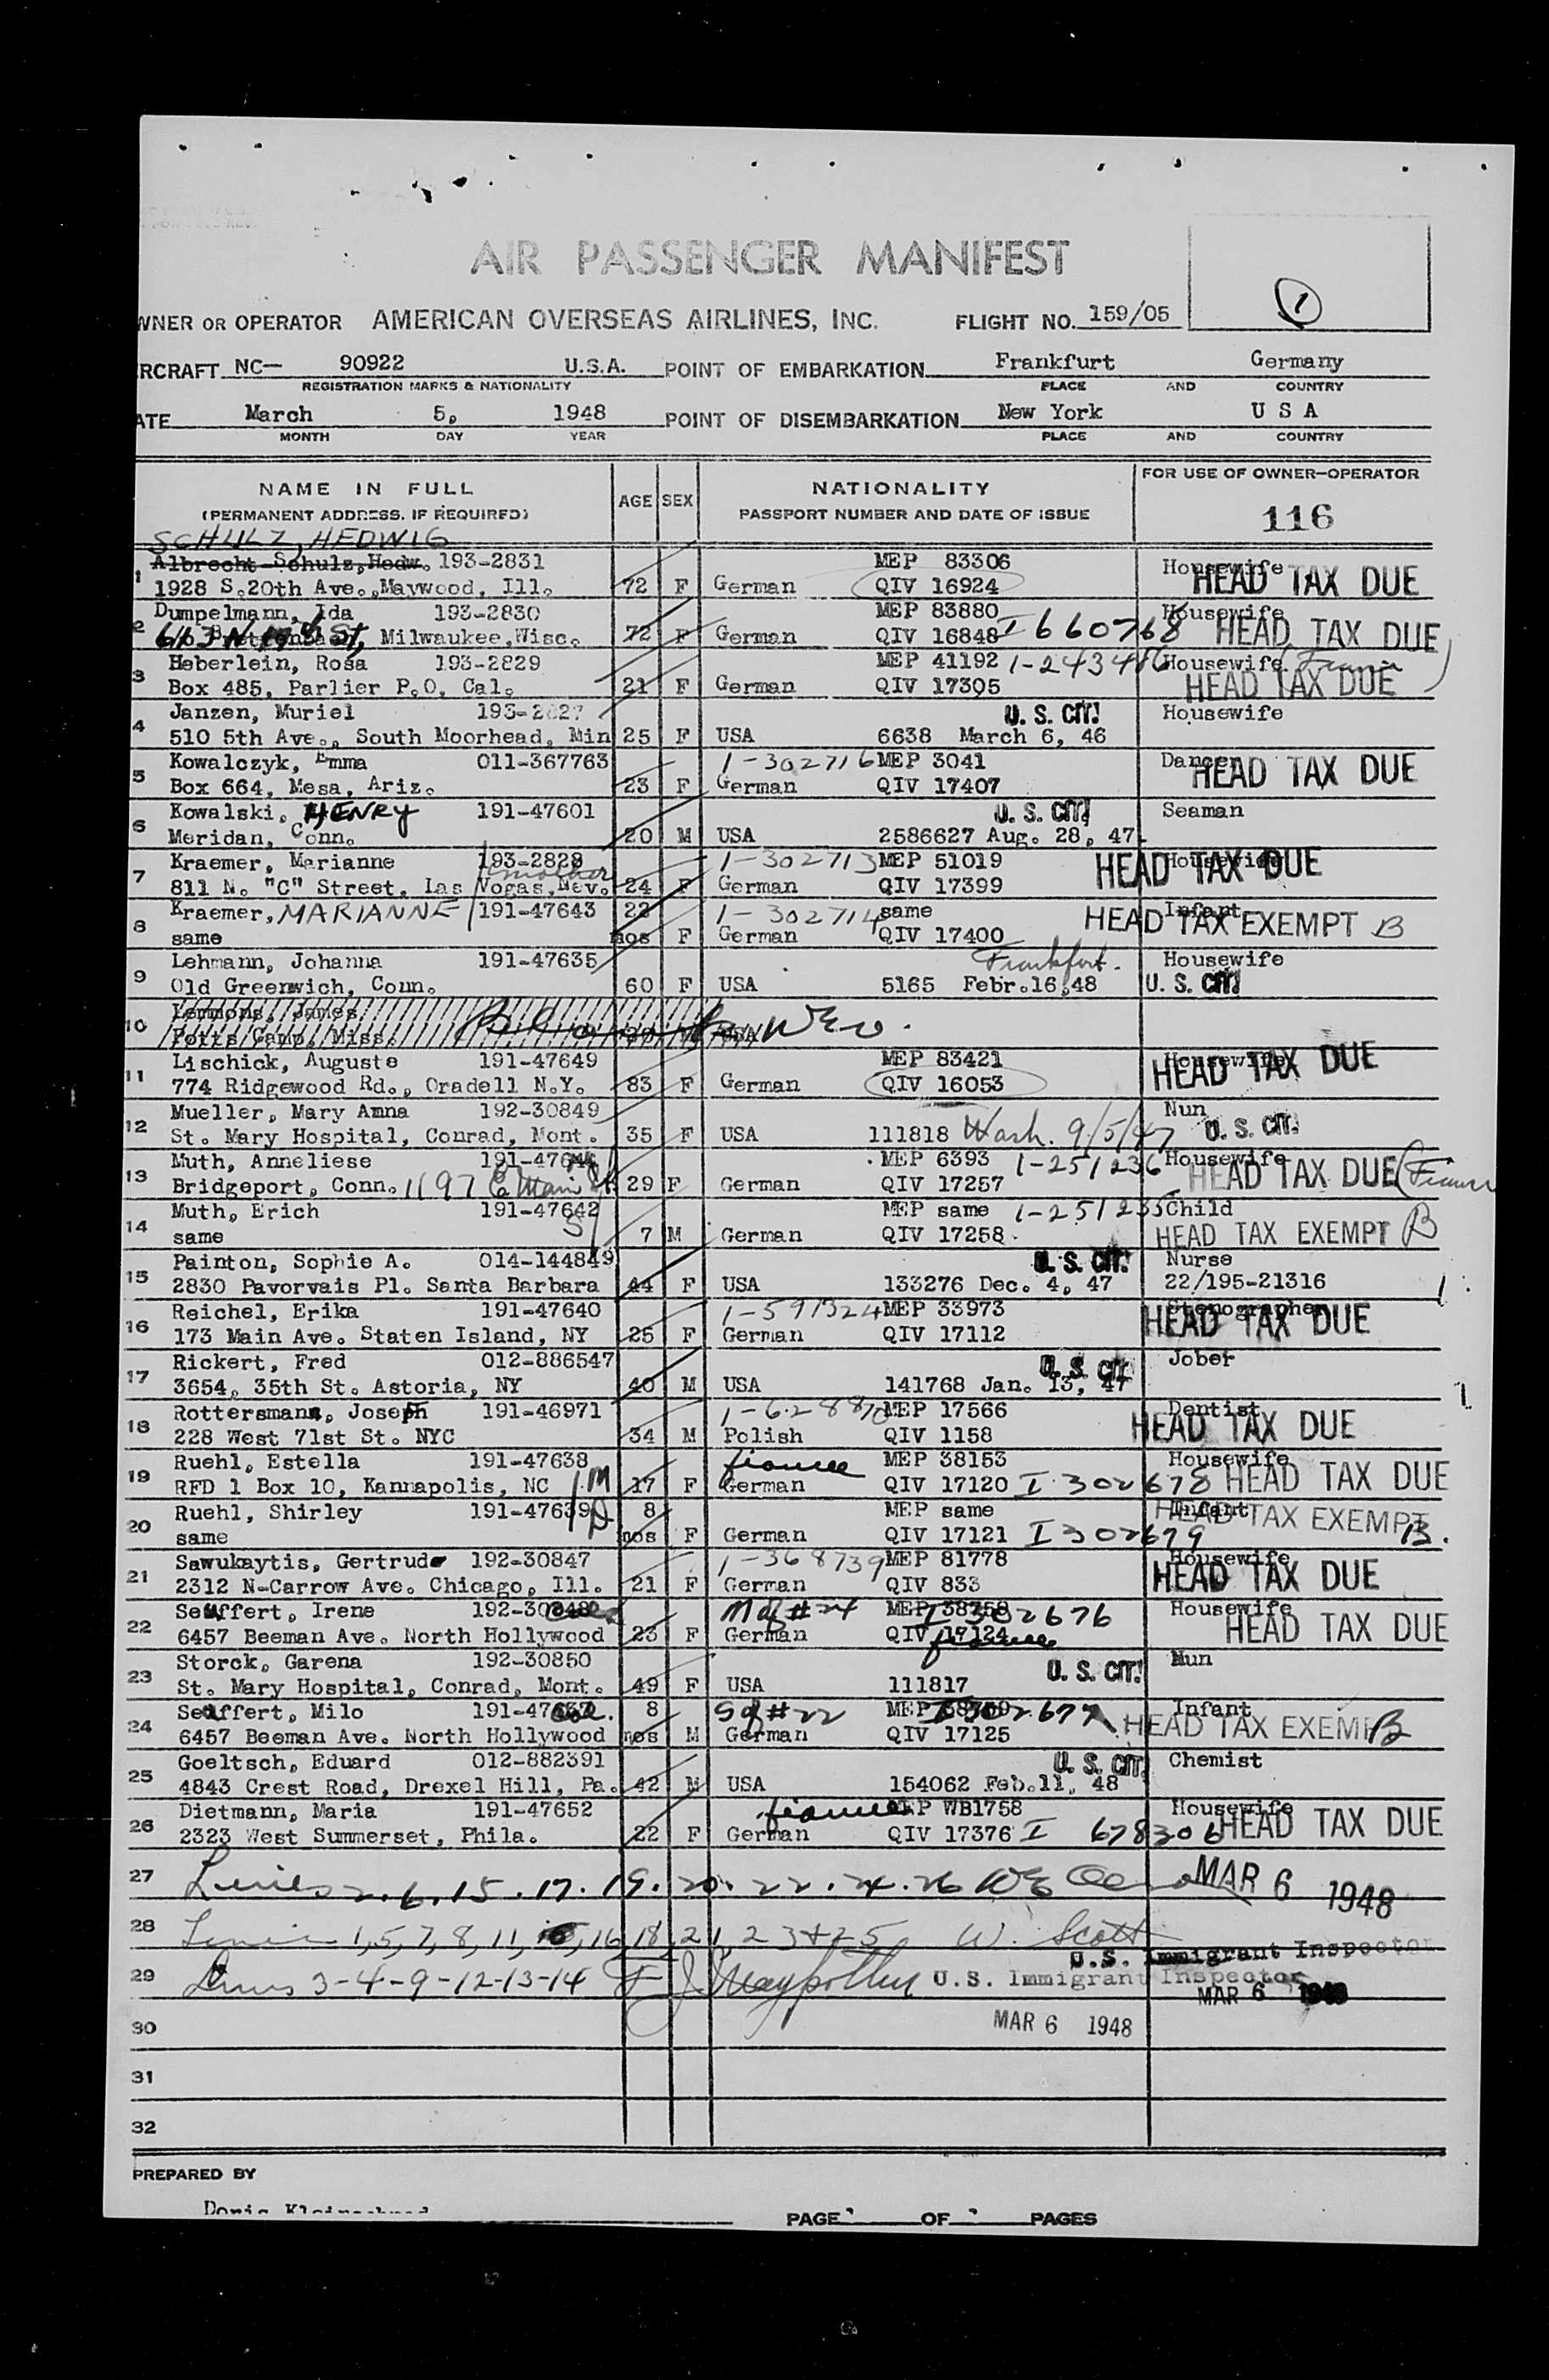 AIR PASSENGER MANIFEST
1
WNER OR OPERATOR AMERICAN OVERSEAS AIRLINES, INC. FLIGHT NO. 159/05
RCRAFT NC— 90922 U.S.A. POINT OF EMBARKATION Frankfurt Germany
REGISTRATION MARKS & NATIONALITY PLACE AND COUNTRY
ATE March 5, 1948 POINT OF DISEMBARKATION New York U S A
MONTH DAY YEAR PLACE AND COUNTRY
NAME IN FULL AGE SEX NATIONALITY FOR USE OF OWNER-OPERATOR
(PERMANENT ADDRESS, IF REQUIRED) PASSPORT NUMBER AND DATE OF ISSUE 116
SCHULZ, HEDWIG
Albrecht-Schulz, Hedw. 193-2831 MEP 83306 Housewife
1 1928 S. 20th Ave., Maywood, Ill. 72 F German QIV 16924 HEAD TAX DUE
Dumpelmann, Ida 193-2830 MEP 83880 Housewife
2 613 N 19th St, Milwaukee, Wisc. 72 F German QIV 16848 I 660768 HEAD TAX DUE
Heberlein, Rosa 193-2829 MEP 41192 1-243416 Housewife
3 Box 485, Parlier P.O, Cal. 21 F German QIV 17305 HEAD TAX DUE
Janzen, Muriel 193-2827 U. S. CIT. Housewife
4 510 5th Ave., South Moorhead, Min 25 F USA 6638 March 6, 46
Kowalczyk, Emma 011-367763 1-302716 MEP 3041 Dancer
5 Box 664, Mesa, Ariz. 23 F German QIV 17407 HEAD TAX DUE
Kowalski, HENRY 191-47601 U. S. CIT. Seaman
6 Meridan, Conn. 20 M USA 2586627 Aug. 28, 47.
Kraemer, Marianne 193-2828 1-302713 MEP 51019 Housewife
7 811 N. "C" Street, Las Vogas, Nev. 24 F German QIV 17399 HEAD TAX DUE
Kraemer, MARIANNE 191-47643 22 1-302714 same Infant
8 same mos F German QIV 17400 HEAD TAX EXEMPT B
Lehmann, Johanna 191-47635 Frankfort. Housewife
9 Old Greenwich, Conn. 60 F USA 5165 Febr.16,48 U. S. CIT.
Lemmons, James
10 Potts Camp, Miss. USA
Lischick, Auguste 191-47649 MEP 83421 Housewife
11 774 Ridgewood Rd., Oradell N.Y. 83 F German QIV 16053 HEAD TAX DUE
Mueller, Mary Anna 192-30849 Nun
12 St. Mary Hospital, Conrad, Mont. 35 F USA 111818 Wash. 9/5/47 U. S. CIT.
Muth, Anneliese MEP 6393 1-251236 Housewife
13 Bridgeport, Conn. 1197 E Main St. 29 F German QIV 17257 HEAD TAX DUE
Muth, Erich 191-47642 MEP same 1-251235 Child
14 same 7 M German QIV 17258 HEAD TAX EXEMPT B
Painton, Sophie A. 014-144849 U. S. CIT. Nurse
15 2830 Pavorvais Pl. Santa Barbara 44 F USA 133276 Dec. 4, 47 22/195-21316
Reichel, Erika 191-47640 1-591324 MEP 33973 Stenographer
16 173 Main Ave. Staten Island, NY 25 F German QIV 17112 HEAD TAX DUE
Rickert, Fred 012-886547 U. S. CIT. Jober
17 3654, 35th St. Astoria, NY 40 M USA 141768 Jan. 13, 47
Rottersmann, Joseph 191-46971 MEP 17566 Dentist
18 228 West 71st St. NYC 34 M Polish QIV 1158 HEAD TAX DUE
Ruehl, Estella 191-47638 fiancee MEP 38153 Housewife
19 RFD 1 Box 10, Kannapolis, NC 17 F German QIV 17120 I 302678 HEAD TAX DUE
Ruehl, Shirley 191-47639 8 MEP same Infant
20 same mos F German QIV 17121 I 302679 HEAD TAX EXEMPT B.
Sawukaytis, Gertrude 192-30847 1-368739 MEP 81778 Housewife
21 2312 N-Carrow Ave. Chicago, Ill. 21 F German QIV 833 HEAD TAX DUE
Seuffert, Irene M of #24 MEP 38758 I 302676 Housewife
22 6457 Beeman Ave. North Hollywood 23 F German QIV 17124 fiancee HEAD TAX DUE
Storck, Garena 192-30850 U. S. CIT. Nun
23 St. Mary Hospital, Conrad, Mont. 49 F USA 111817
Seuffert, Milo 8 S of #22 Infant
24 6457 Beeman Ave. North Hollywood mos M German QIV 17125 HEAD TAX EXEM B
Goeltsch, Eduard 012-882391 U. S. CIT. Chemist
25 4843 Crest Road, Drexel Hill, Pa. 42 M USA 154062 Feb.11, 48
Dietmann, Maria 191-47652 fiancee MEP WB1758 Housewife
26 2323 West Summerset, Phila. 22 F German QIV 17376 I 678306 HEAD TAX DUE
27 Lines 2.6.15.17.19.20.22.24.26 MAR 6 1948
28 Lines 1,5,7,8,11, 16,18,21 23+25 W. Scott
U.S. Immigrant Inspector
29 Lines 3-4-9-12-13-14 U.S. Immigrant Inspector
MAR 6 1948
30 MAR 6 1948
31
32
PREPARED BY
PAGE OF PAGES